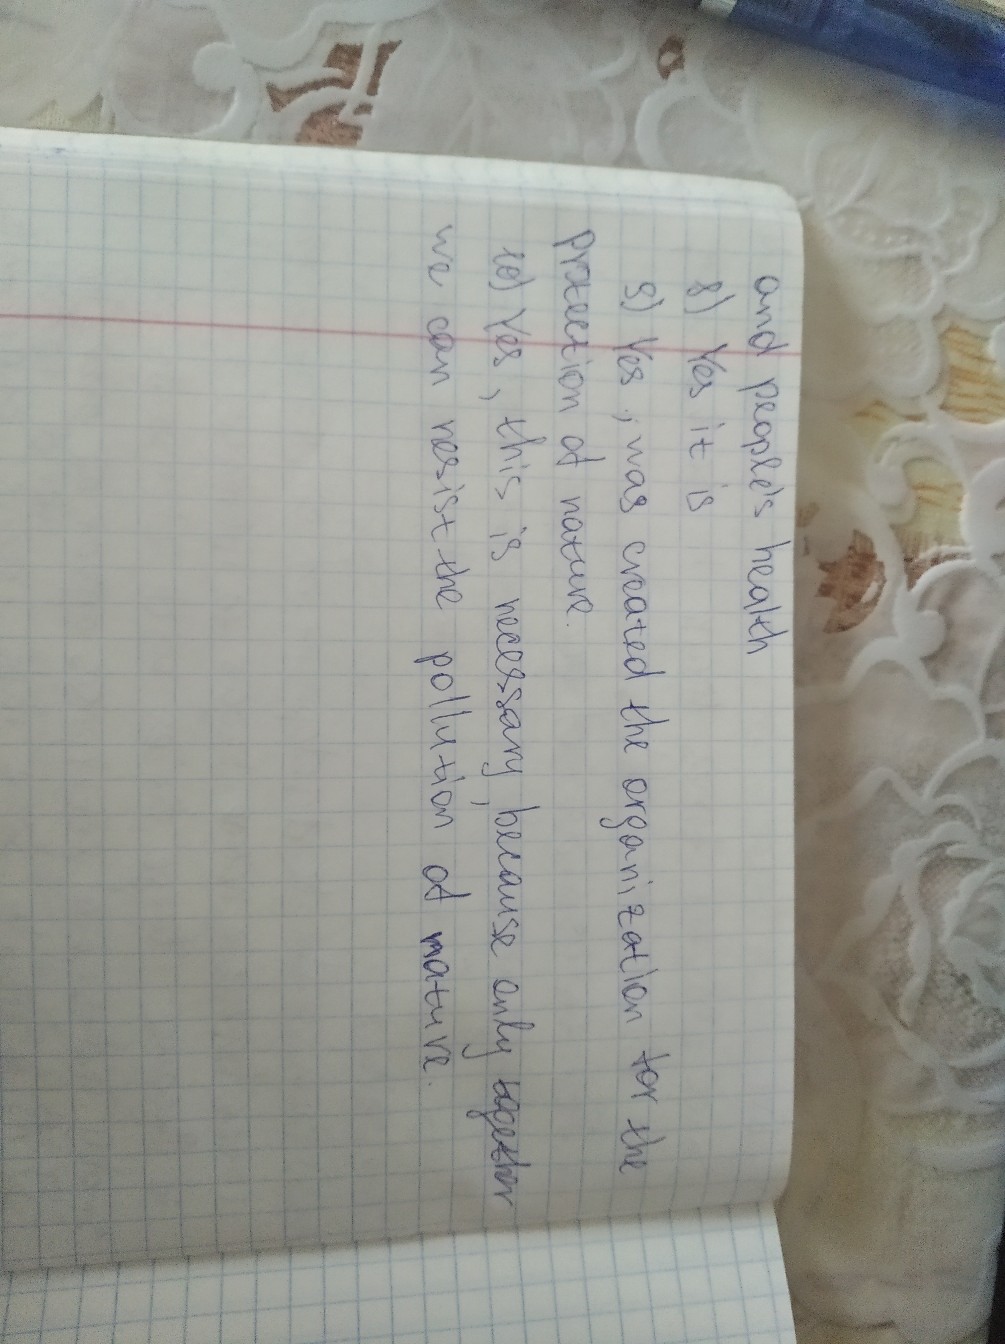 and people's health
8) Yes it is
9) Yes, was created the organization for the
protection of nature.
10) Yes, this is necessary, because only together
we can resist the pollution of nature.